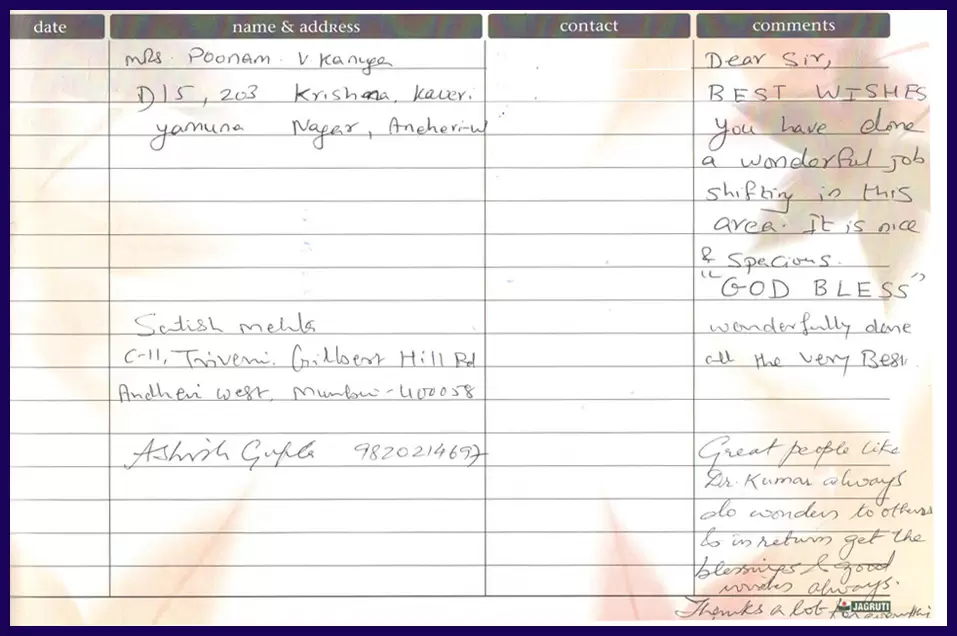 date name & address contact comments
Mrs. Poonam. V Kaniya
D15, 203 Krishna, Kaveri
Yamuna Nagar, Andheri-W
Dear Sir,
BEST WISHES
You have done
a wonderful job
shifting in this
area. It is nice
& spacious.
"GOD BLESS"
Satish Mehta
C-11, Triveni. Gilbert Hill Rd
Andheri West, Mumbai-400058
wonderfully done
all the very Best.
Ashish Gupta 9820214697
Great people like
Dr. Kumar always
do wonders to others
& in return get the
blessings & good
wishes always.
Thanks a lot
JAGRUTI